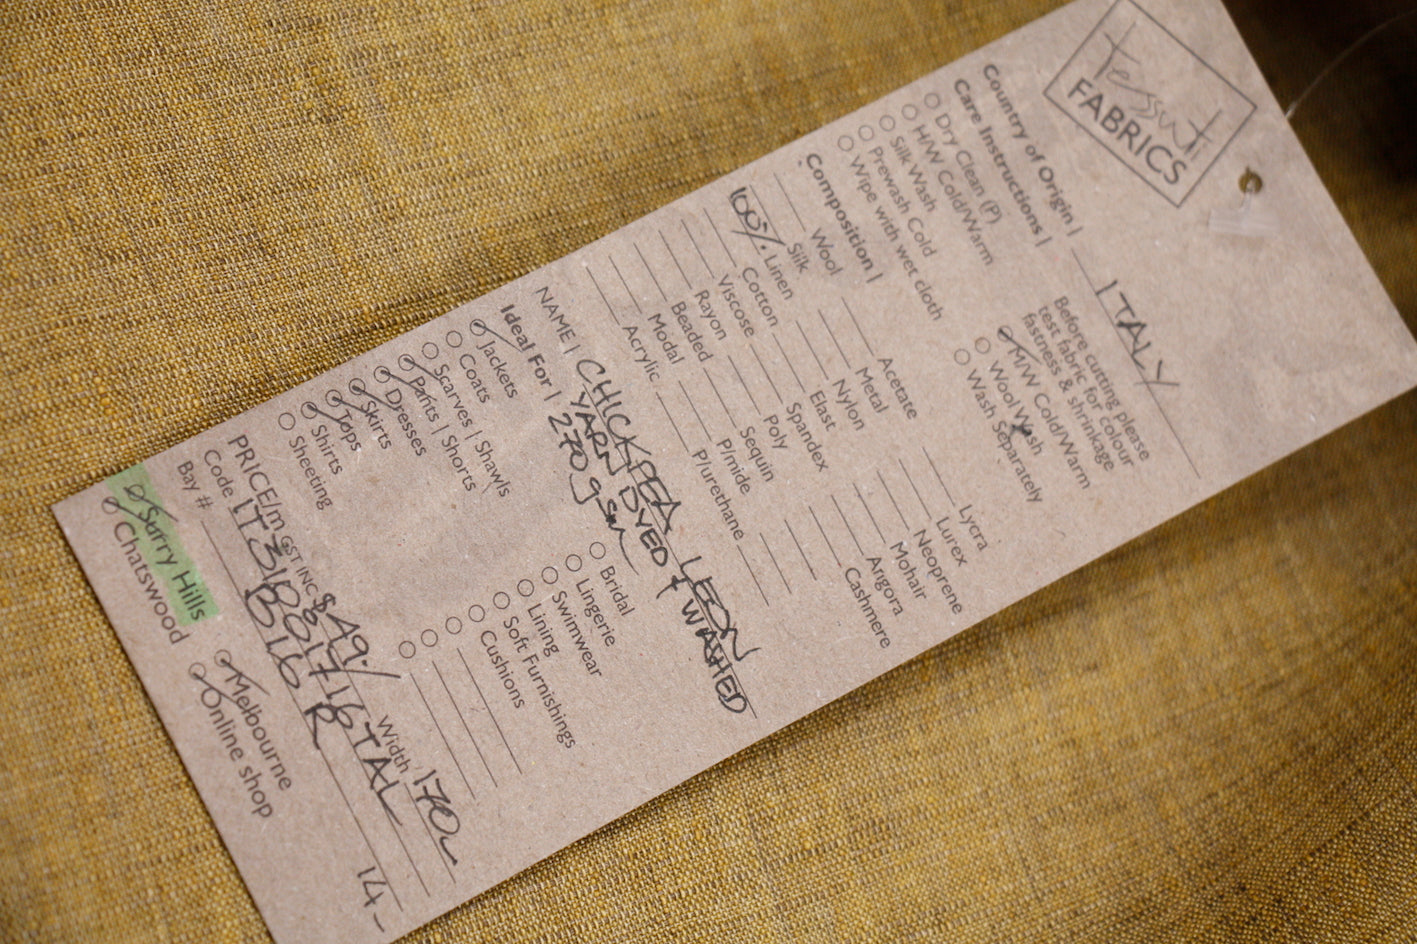 tessuti
FABRICS
Country of Origin | ITALY
Care Instructions |
Dry Clean (P)
H/W Cold/Warm
Silk Wash
Prewash Cold
Wipe with wet cloth
Before cutting please
test fabric for colour
fastness & shrinkage
M/W Cold/Warm
Wool Wash
Wash Separately
Composition |
Wool
Silk
100% Linen
Cotton
Viscose
Rayon
Beaded
Modal
Acrylic
Acetate
Metal
Nylon
Elast
Spandex
Poly
Sequin
P/mide
P/urethane
Lycra
Lurex
Neoprene
Mohair
Angora
Cashmere
NAME | CHICKPEA
YARN DYED + WASHED
270gsm
Ideal For |
Jackets
Coats
Scarves | Shawls
Pants | Shorts
Dresses
Skirts
Tops
Shirts
Sheeting
Bridal
Lingerie
Swimwear
Lining
Soft Furnishings
Cushions
PRICE/m GST INC $49.-/
Width 170
Code
Bay # B16 R
14-
Surry Hills
Chatswood
Melbourne
Online shop